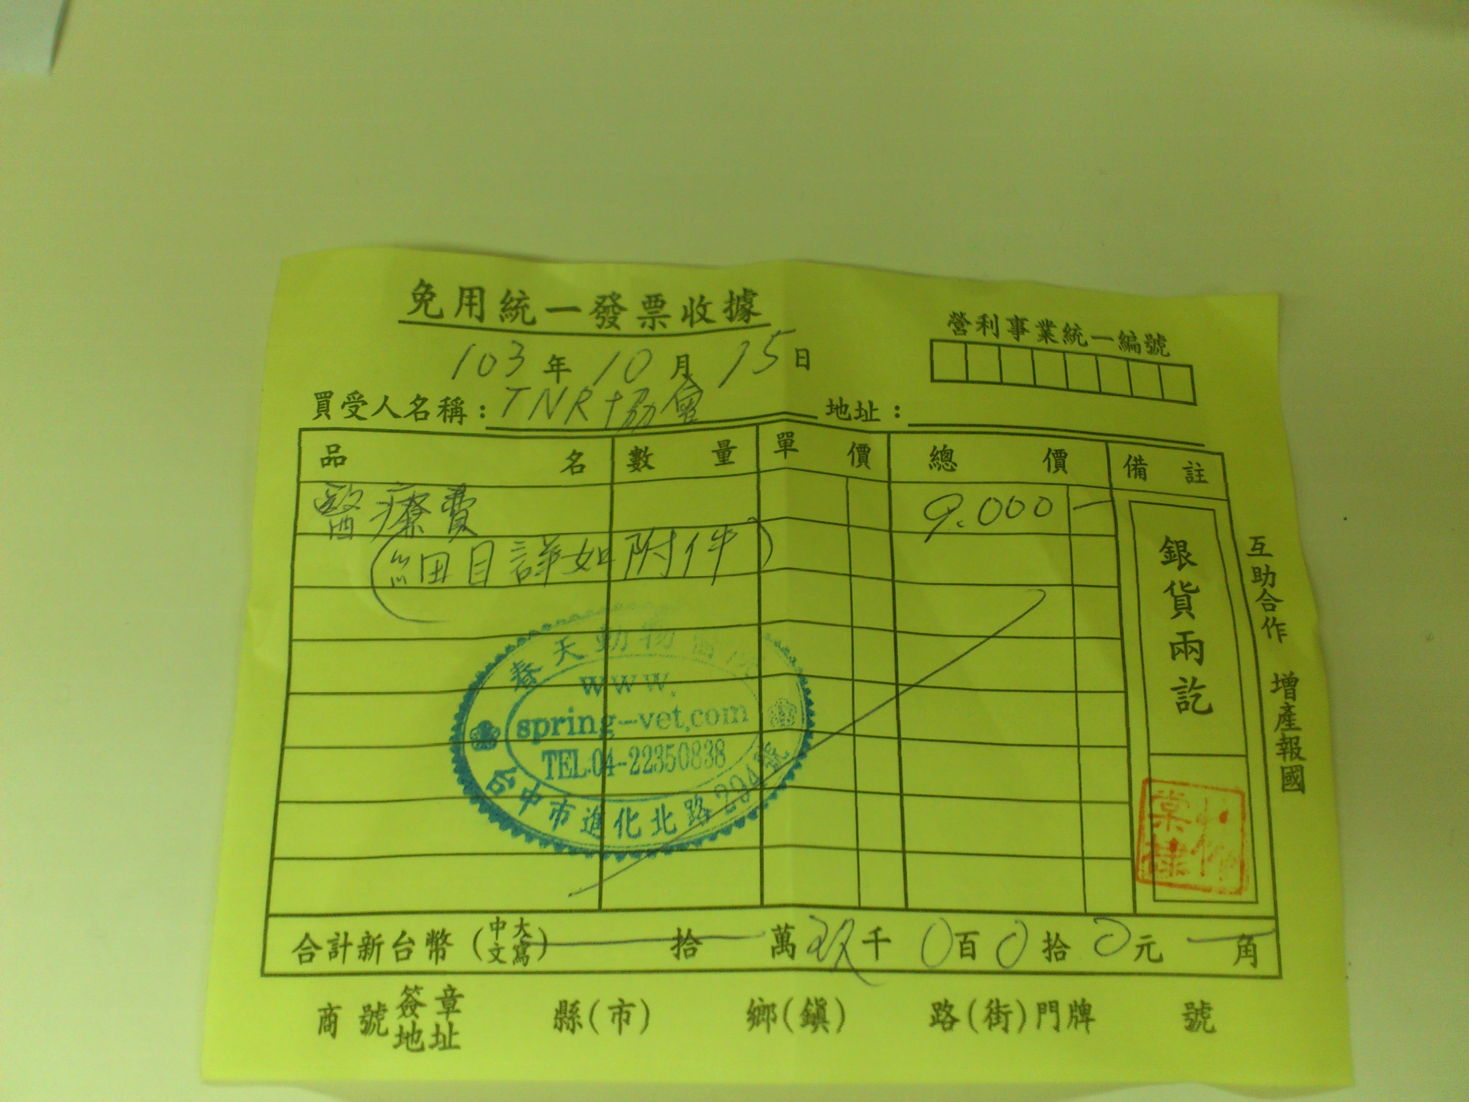 免用統一發票收據
營利事業統一編號
103年10月15日
買受人名稱：TNR協會 地址：
品名 數量 單價 總價 備註
醫療費 9.000
(細目詳如附件)
銀貨兩訖
互助合作 增產報國
春天動物醫院
www.
spring-vet.com
TEL.04-22350838
台中市進化北路294號
合計新台幣(中文大寫) 拾 萬 玖千 0百 0拾 0元 角
商號簽章地址 縣(市) 鄉(鎮) 路(街)門牌 號